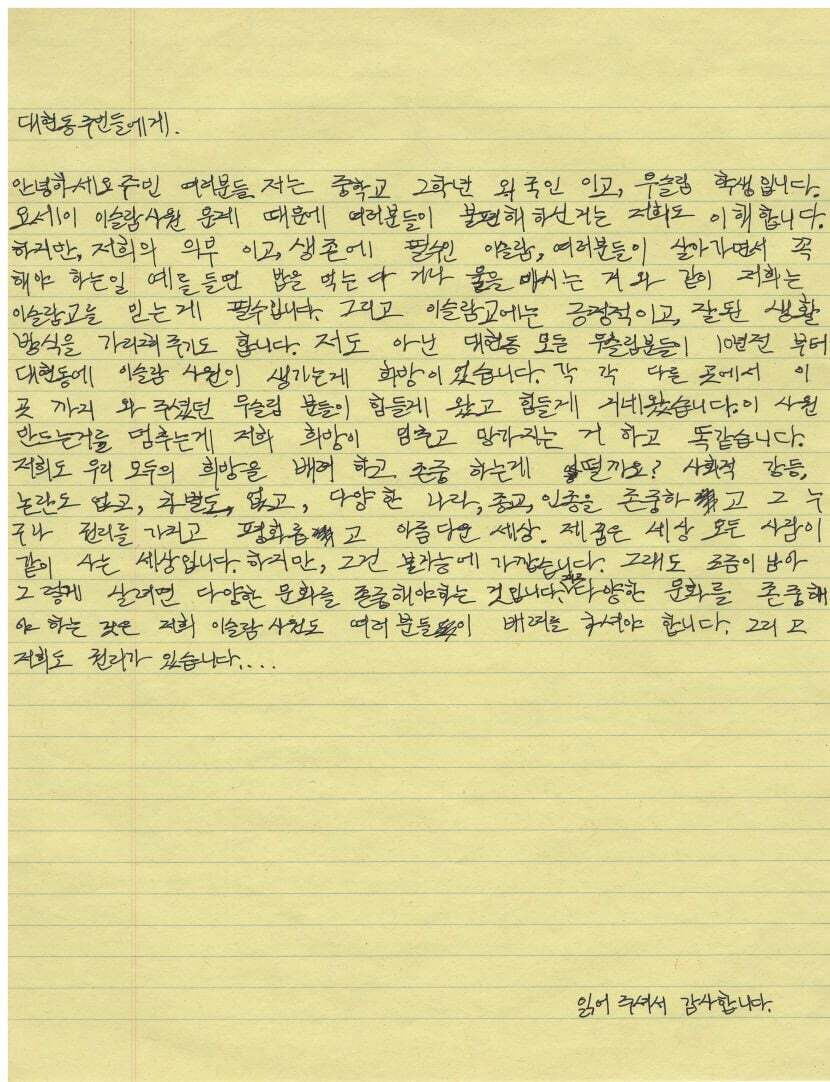 대현동주민들에게.
안녕하세요 주민 여러분들 저는 중학교 2학년 외국인 이고, 무슬림 학생입니다.
요세이 이슬람사원 문제 때문에 여러분들이 불편해 하신거는 저희도 이해합니다.
하지만, 저희의 의무 이고, 생존에 필수인 이슬람, 여러분들이 살아가면서 꼭
해야 하는일 예를 들면 밥을 먹는 다 거나 물을 마시는 거 와 같이 저희는
이슬람교를 믿는게 필수입니다. 그리고 이슬람교에는 긍정적이고, 잘된 생활
방식을 가리켜 주기도 합니다. 저도 아닌 대현동 모든 무슬림분들이 10년전 부터
대현동에 이슬람 사원이 생기는게 희망이 었습니다. 각 각 다른 곳에서 이
곳 까지 와 주셨던 무슬림 분들이 힘들게 왔고 힘들게 지네왔습니다. 이 사원
만드는거를 멈추는게 저희 희망이 멈추고 망가지는 거 하고 똑같습니다.
저희도 우리 모두의 희망을 배려 하고 존중 하는게 어떨까요? 사회적 갈등,
논란도 없고, 차별도, 없고, 다양한 나라, 종교, 인종을 존중하고 그 누
구나 권리를 가지고 평화롭고 아름다운 세상. 제 꿈은 세상 모든 사람이
같이 사는 세상입니다. 하지만, 그건 불가능에 가깝습니다. 그래도 조금이 남아
그렇게 살려면 다양한 문화를 존중해야하는 것입니다. 다양한 문화를 존중해
야 하는 것은 저희 이슬람 사원도 여러분들이 배려를 하셔야 합니다. 그리고
저희도 권리가 있습니다....
읽어 주셔서 감사합니다.